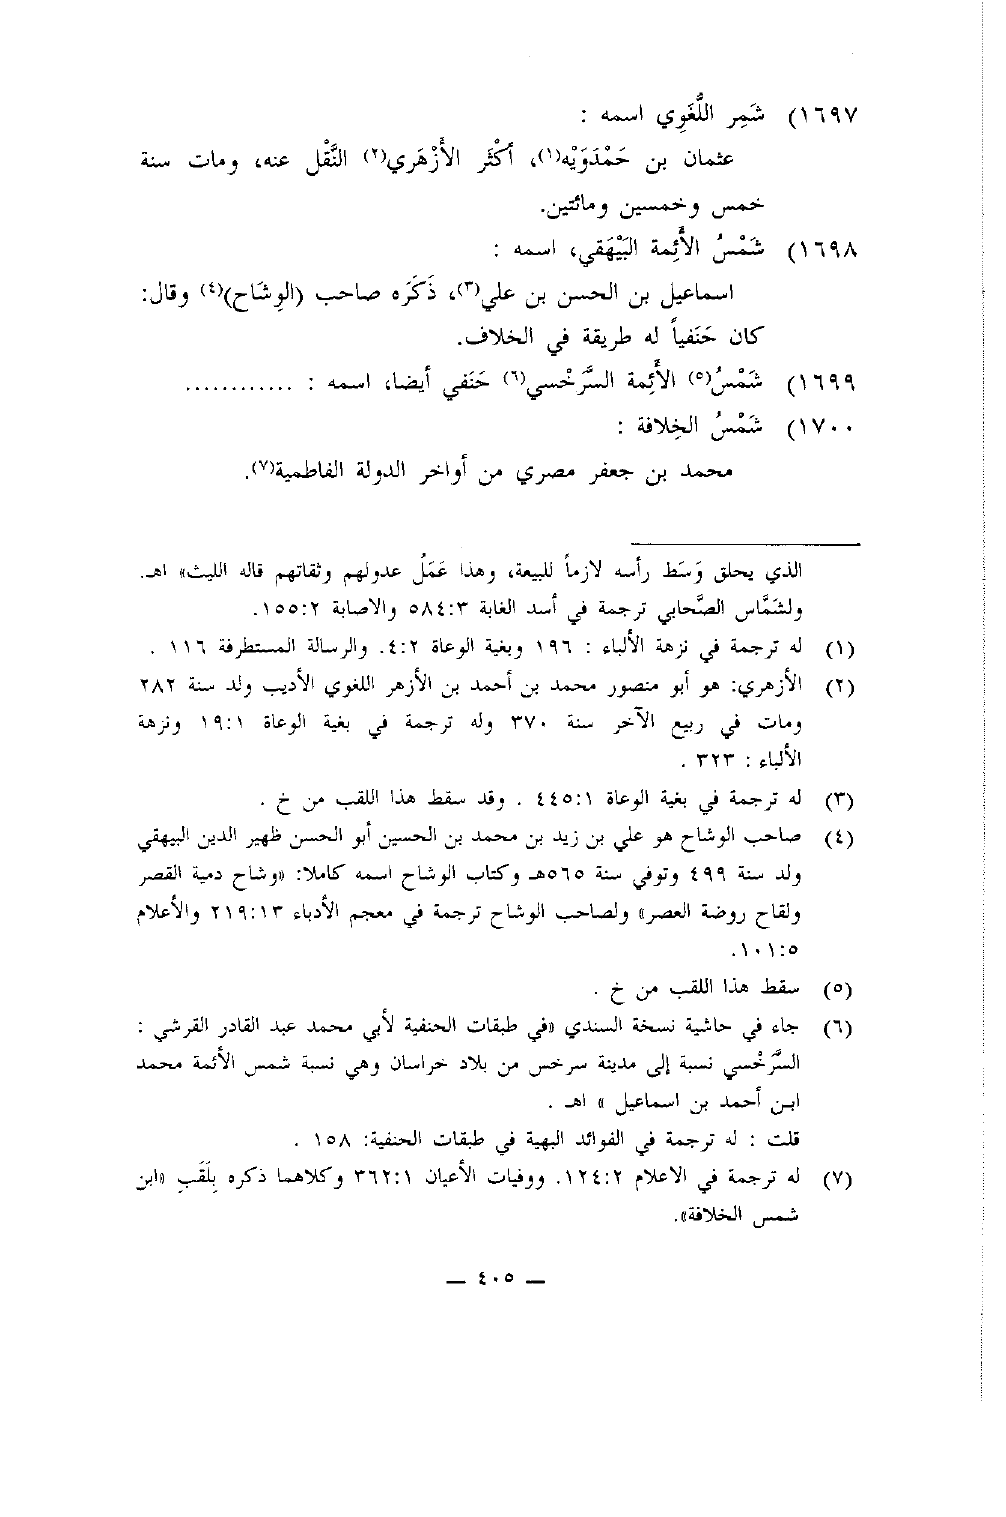 ١٦٩٧) شَمِر اللُّغَوِي اسمه :
عثمان بن حَمْدَوَيْه(١)، أكْثَر الأزْهَري(٢) النَّقْل عنه، ومات سنة
خمس وخمسين ومائتين.
١٦٩٨) شَمْسُ الأَئِمة البَيْهَقي، اسمه :
اسماعيل بن الحسن بن علي(٣)، ذَكَره صاحب (الوِشَاح)(٤) وقال:
كان حَنَفياً له طريقة في الخلاف.
١٦٩٩) شَمْسُ(٥) الأَئِمة السَّرَخْسي(٦) حَنَفي أيضا، اسمه : ............
١٧٠٠) شَمْسُ الخِلافة :
محمد بن جعفر مصري من أواخر الدولة الفاطمية(٧).
الذي يحلق وَسَط رأسه لازماً للبيعة، وهذا عَمَلُ عدولهم وثقاتهم قاله الليث» اهـ.
ولشَمَّاس الصَّحابي ترجمة في أسد الغابة ٥٨٤:٣ والاصابة ١٥٥:٢.
(١) له ترجمة في نزهة الألباء : ١٩٦ وبغية الوعاة ٤:٢. والرسالة المستطرفة ١١٦ .
(٢) الأزهري: هو أبو منصور محمد بن أحمد بن الأزهر اللغوي الأديب ولد سنة ٢٨٢
ومات في ربيع الآخر سنة ٣٧٠ وله ترجمة في بغية الوعاة ١٩:١ ونزهة
الألباء : ٣٢٣ .
(٣) له ترجمة في بغية الوعاة ٤٤٥:١ . وقد سقط هذا اللقب من خ .
(٤) صاحب الوشاح هو علي بن زيد بن محمد بن الحسين أبو الحسن ظهير الدين البيهقي
ولد سنة ٤٩٩ وتوفي سنة ٥٦٥هـ وكتاب الوشاح اسمه كاملا: «وشاح دمية القصر
ولقاح روضة العصر» ولصاحب الوشاح ترجمة في معجم الأدباء ٢١٩:١٣ والأعلام
١٠١:٥.
(٥) سقط هذا اللقب من خ .
(٦) جاء في حاشية نسخة السندي «في طبقات الحنفية لأبي محمد عبد القادر القرشي :
السَّرَخْسي نسبة إلى مدينة سرخس من بلاد خراسان وهي نسبة شمس الأئمة محمد
ابن أحمد بن اسماعيل » اهـ .
قلت : له ترجمة في الفوائد البهية في طبقات الحنفية: ١٥٨ .
(٧) له ترجمة في الاعلام ١٢٤:٢. ووفيات الأعيان ٣٦٢:١ وكلاهما ذكره بِلَقَبِ «ابن
شمس الخلافة».
— ٤٠٥ —